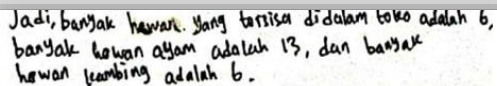 Jadi, banyak hewan. yang tersisa didalam toko adalah 6,
banyak hewan ayam adalah 13, dan banyak
hewan kambing adalah 6.